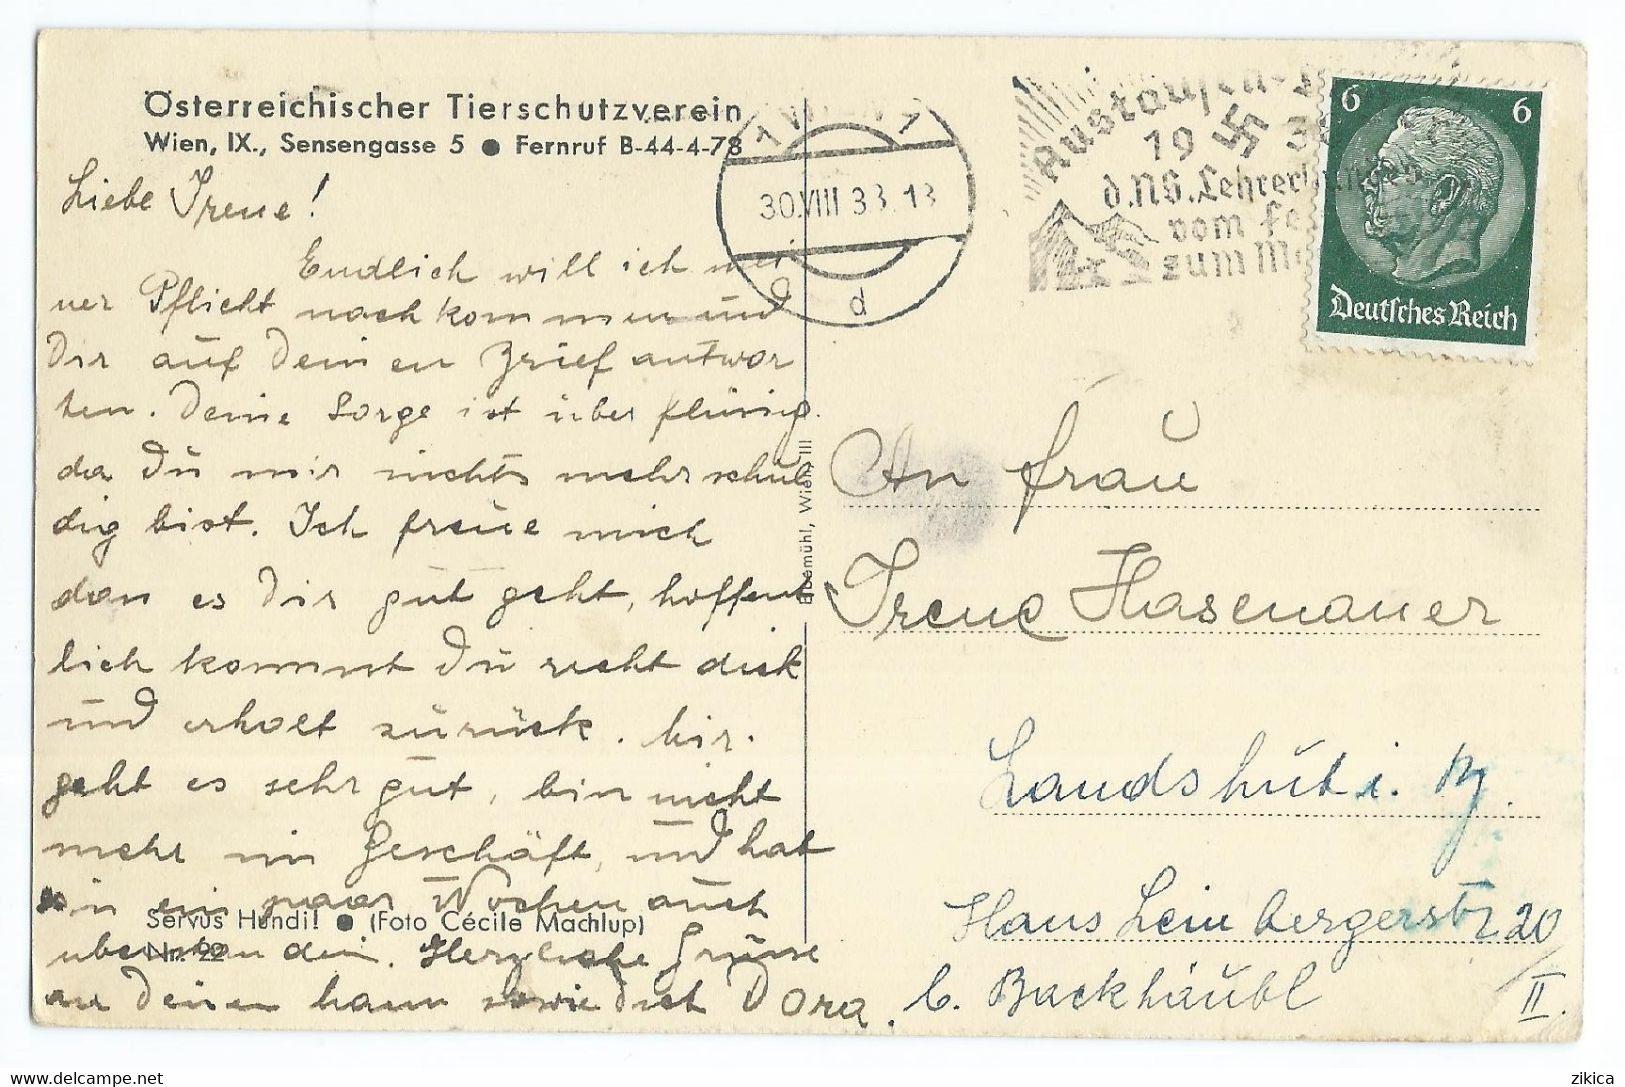 Österreichischer Tierschutzverein
Wien, IX., Sensengasse 5 ● Fernruf B-44-4-78
Liebe Irene!
Endlich will ich mei
ner Pflicht nachkommen und
Dir auf Deinen Brief antwor
ten. Deine Sorge ist über flüssig.
da Du mir nichts mehr schul
dig bist. Ich freue mich
dass es Dir gut geht, hoffent
lich kommst Du recht dick
und erholt zurück. Mir
geht es sehr gut, bin nicht
mehr im Geschäft, und hat
in ein paar Wochen auch
Servus Hundi! ● (Foto Cécile Machlup)
Nr. 92
Herzliche Grüsse
an Deinen Mann sowie Dich Dora.
Brüder Rosenbaum
1 WIEN 1
30.VIII 38.13
d
Austauschlager
1938
d.NS.Lehrerbundes
vom Fels
zum Meer
6 6
Deutsches Reich
An Frau
Irene Hasenauer
Landshut i. B.
Hans Leinbergerstr 20/II.
b. Backhäubl
zikica